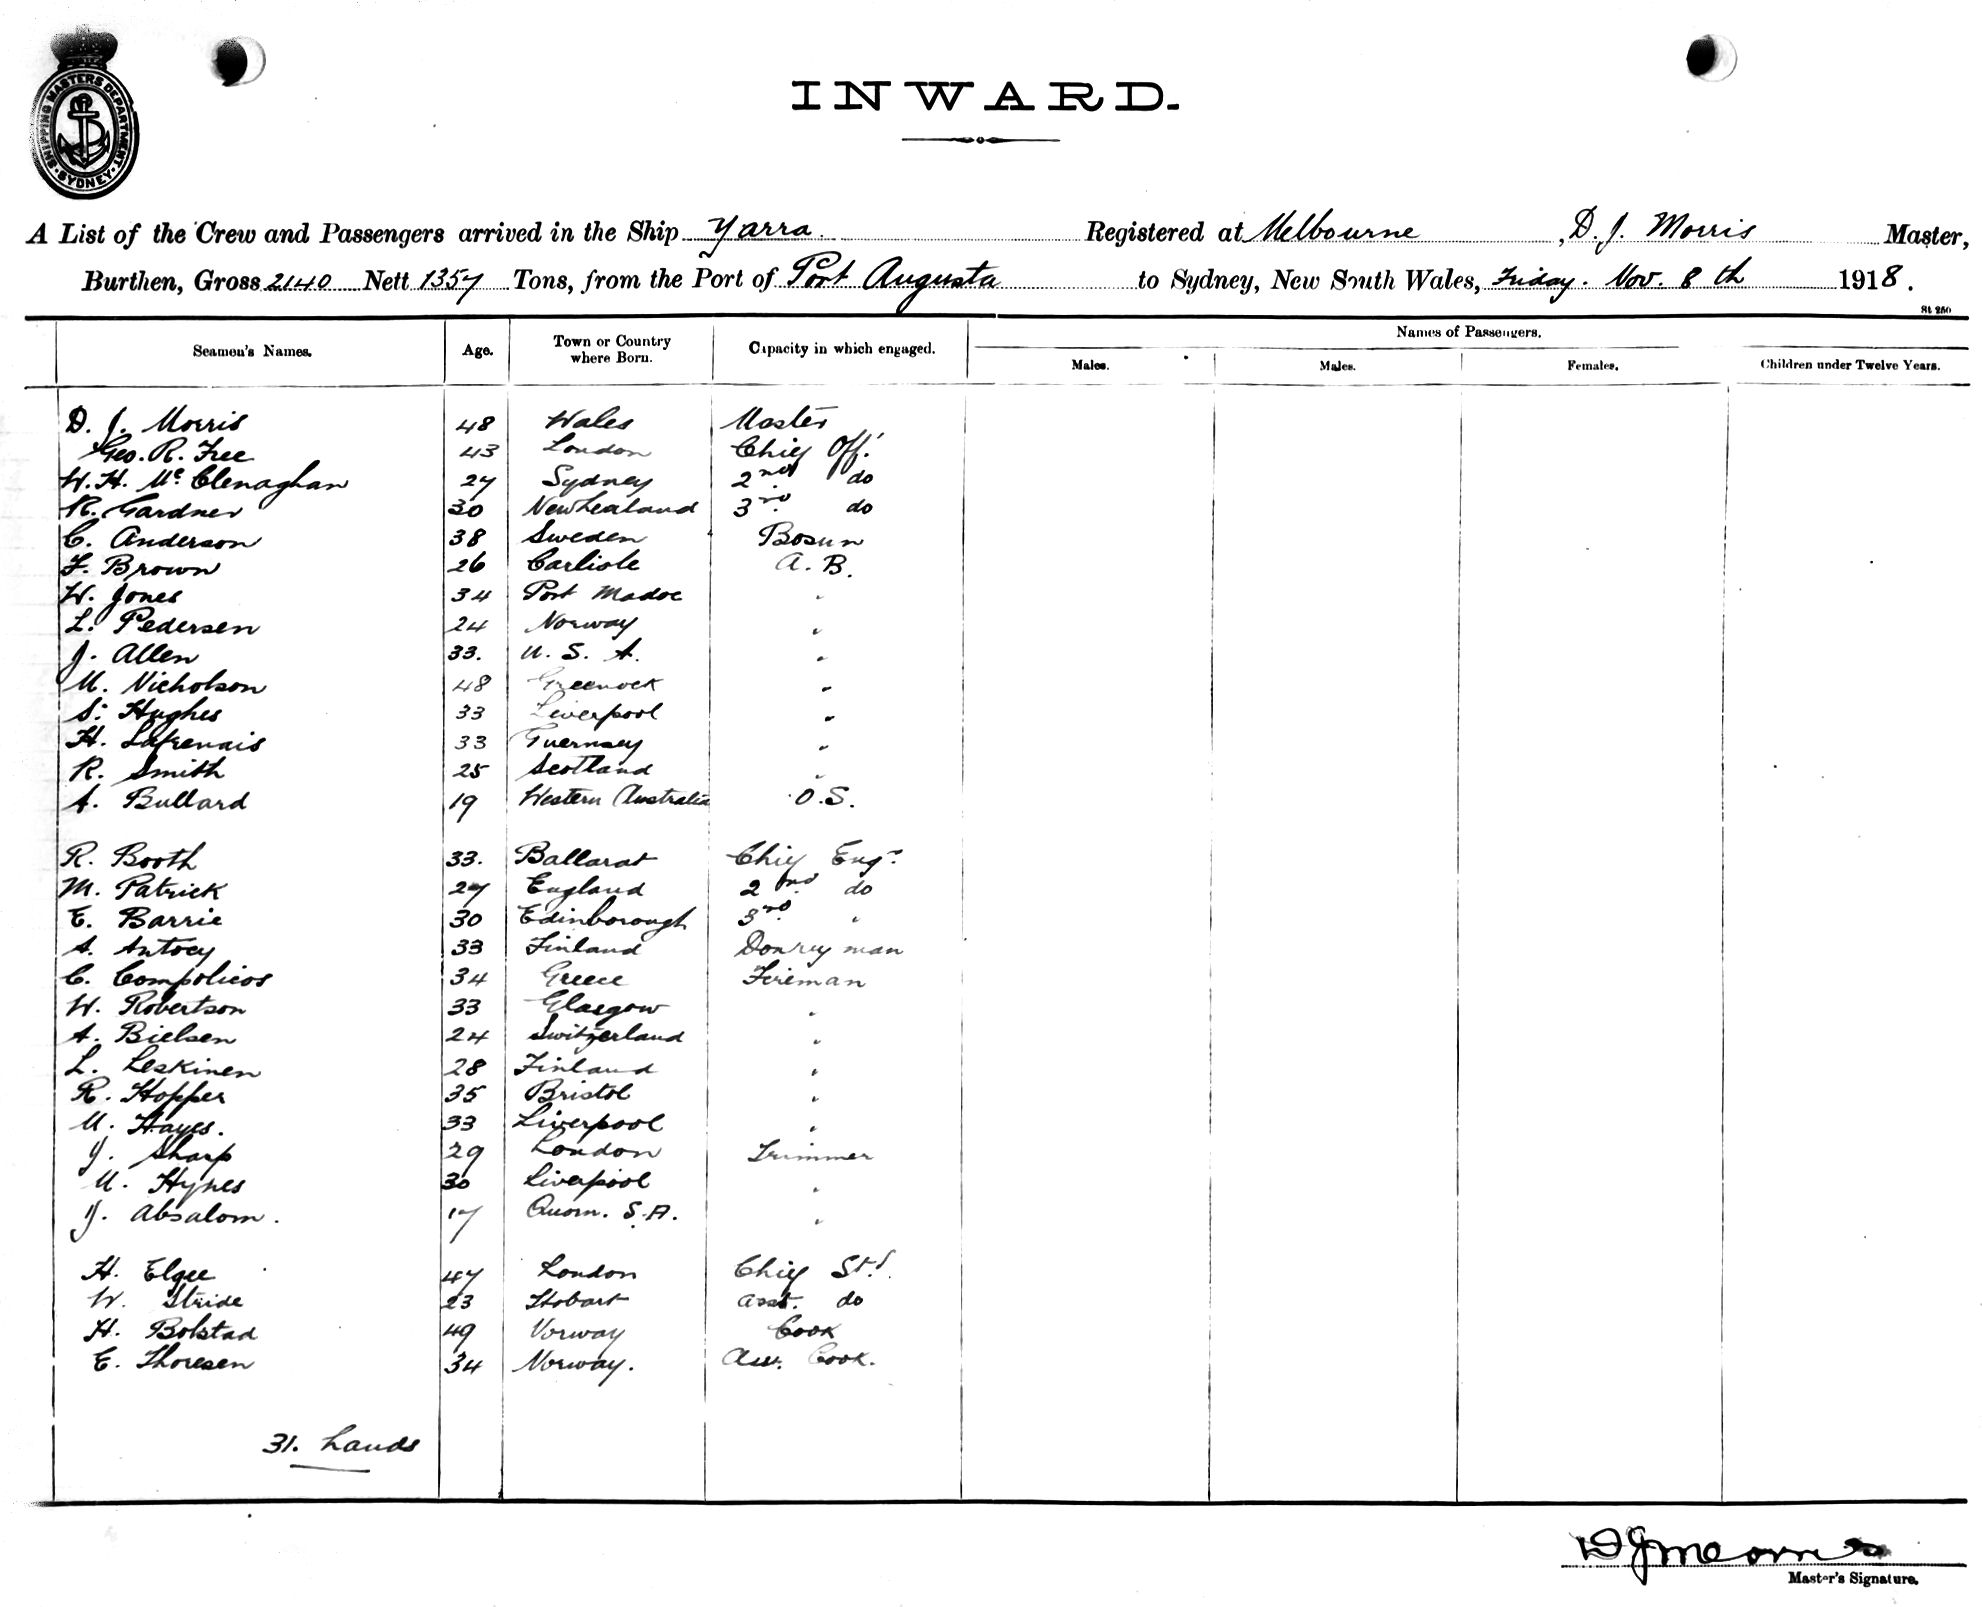 SHIPPING MASTERS DEPARTMENT
SYDNEY
INWARD.
A List of the Crew and Passengers arrived in the Ship Yarra. Registered at Melbourne, D. J. Morris Master,
Burthen, Gross 2140 Nett 1357 Tons, from the Port of Port Augusta to Sydney, New South Wales, Friday. Nov. 8th 1918.
St 250
Seamen's Names. Age. Town or Country where Born. Capacity in which engaged. Names of Passengers.
Males. Males. Females. Children under Twelve Years.
D. J. Morris 48 Wales Master
Geo. R. Free 43 London Chief Off.
W. H. McClenaghan 27 Sydney 2nd do
R. Gardner 30 New Zealand 3rd do
C. Anderson 38 Sweden Bosun
F. Brown 26 Carlisle A. B.
W. Jones 34 Port Madoc "
L. Pedersen 24 Norway "
J. Allen 33. U. S. A. "
M. Nicholson 48 Greenock "
S. Hughes 33 Liverpool "
H. Lafrenais 33 Guernsey "
R. Smith 25 Scotland "
A. Bullard 19 Western Australia O.S.
R. Booth 33. Ballarat Chief Engr.
M. Patrick 27 England 2nd do
E. Barrie 30 Edinborough 3rd "
A. Antoey 33 Finland Donkey man
C. Compolicos 34 Greece Fireman
W. Robertson 33 Glasgow "
A. Bielsen 24 Switzerland "
L. Leskinen 28 Finland "
R. Hopper 35 Bristol "
M. Hayes. 33 Liverpool "
J. Sharp 29 London Trimmer
M. Hynes 30 Liverpool "
J. Absalom. 17 Quorn. S.A. "
H. Elgee 47 London Chief Std.
W. Stride 23 Hobart Asst. do
H. Bolstad 49 Norway Cook
E. Thoresen 34 Norway. Ass. Cook.
31. hands
D J Morris
Master's Signature.